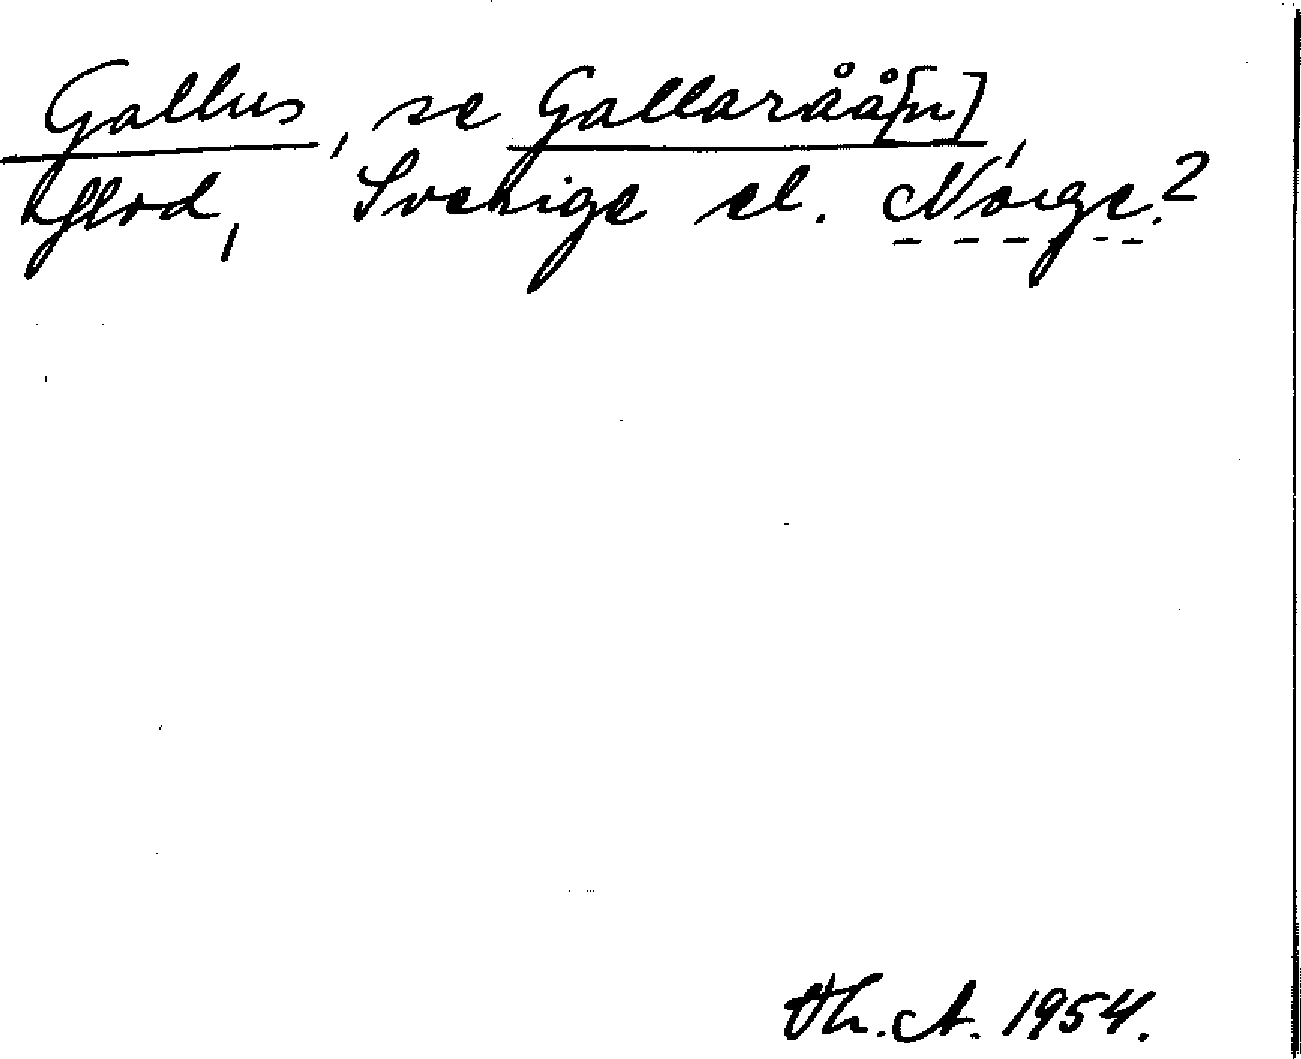 Gallus, se Gallaråå[n],
flod, Sverige el. Norge.?
Th. A. 1954.